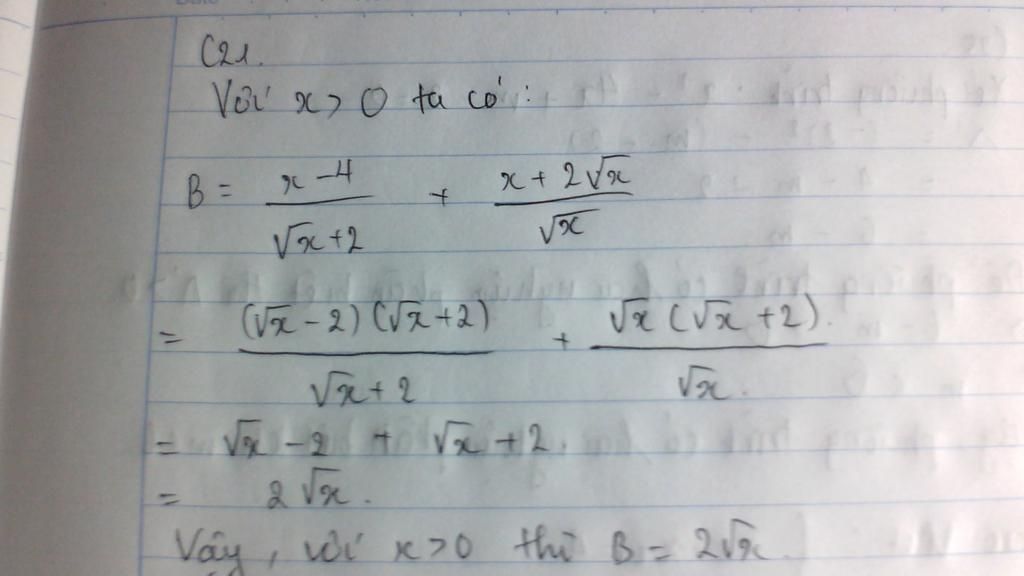 C21.
Với x > 0 ta có:
B = \frac{x - 4}{\sqrt{x} + 2} + \frac{x + 2\sqrt{x}}{\sqrt{x}}
= \frac{(\sqrt{x} - 2)(\sqrt{x} + 2)}{\sqrt{x} + 2} + \frac{\sqrt{x}(\sqrt{x} + 2)}{\sqrt{x}}.
= \sqrt{x} - 2 + \sqrt{x} + 2.
= 2\sqrt{x}.
Vậy, với x > 0 thì B = 2\sqrt{x}.